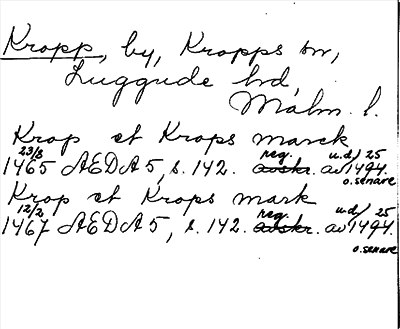 Kropp, by, Kropps sn,
Luggude hd,
Malm. l.
Krop et Krops marck
23/8 reg. u.d./25
1465 ÆDA 5, s. 142. avskr. av 1494.
o.senare
Krop et Krops mark
12/2 reg. u.d./25
1467 ÆDA 5, s. 142. avskr. av 1494.
o.senare